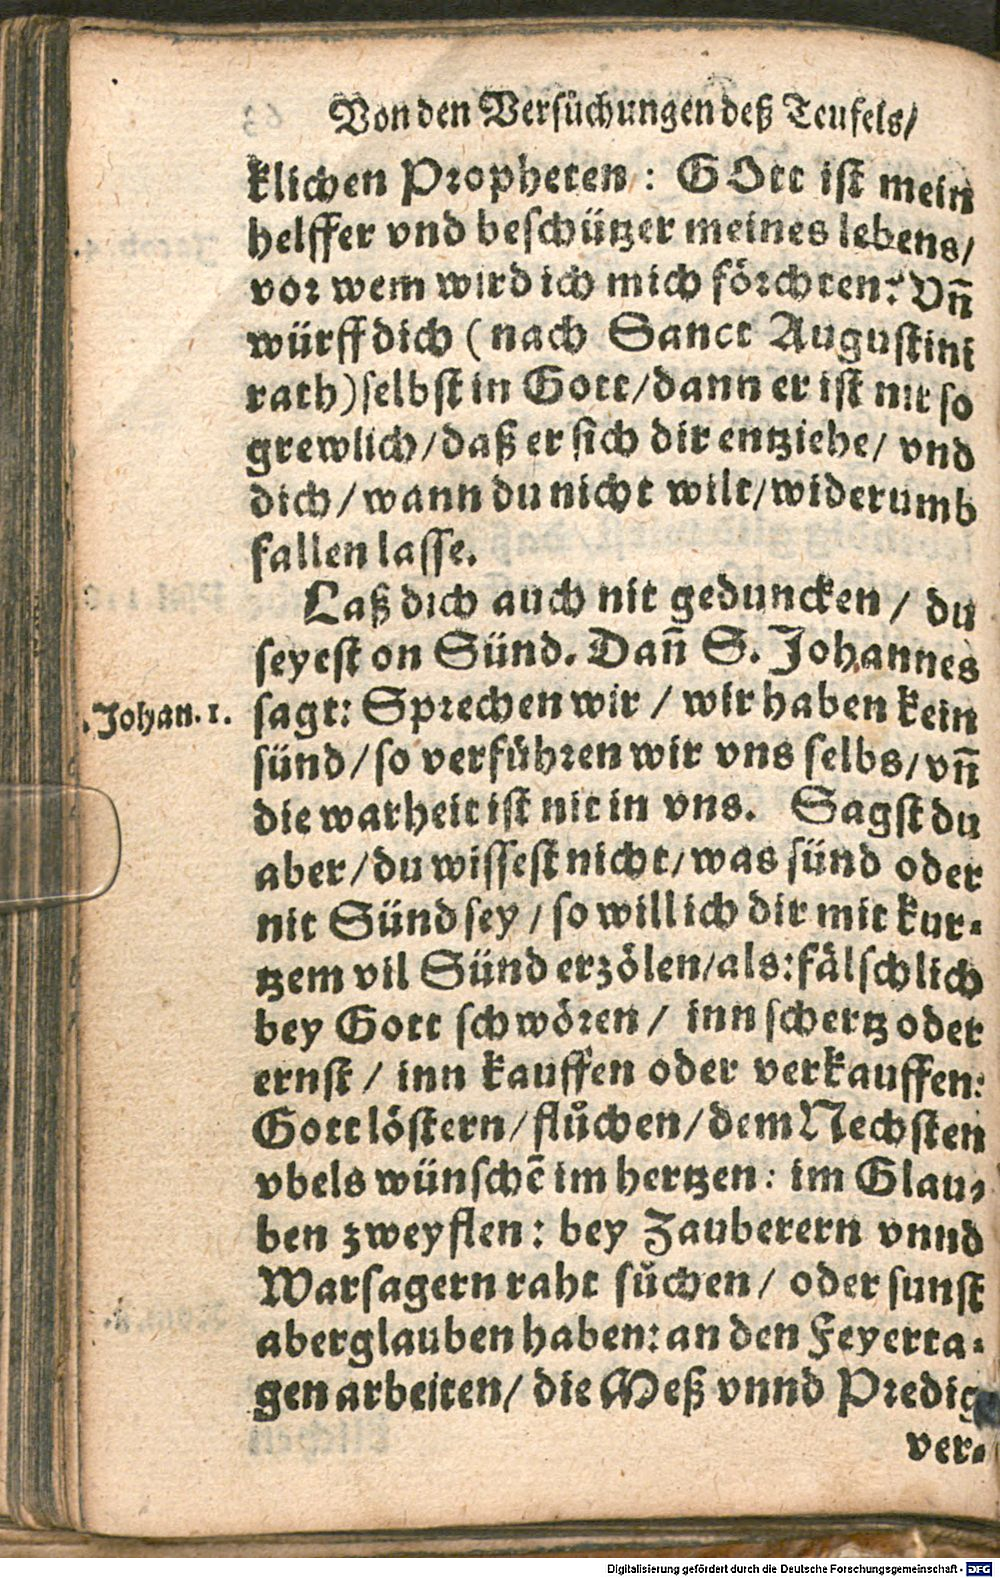 Von den Versůchungen deß Teufels/
klichen Propheten: GOtt ist mein
helffer vnd beschützer meines lebens/
vor wem wird ich mich förchten: Vñ
würff dich (nach Sanct Augustini
rath) selbst in Gott/ dann er ist nit so
grewlich/ daß er sich dir entziehe/ vnd
dich/ wann du nicht wilt/ widerumb
fallen lasse.
Laß dich auch nit geduncken/ du
seyest on Sünd. Dañ S. Johannes
1. Johan. 1.
sagt: Sprechen wir/ wir haben kein
sünd/ so verführen wir vns selbs/ vñ
die warheit ist nit in vns. Sagst du
aber/ du wissest nicht/ was sünd oder
nit Sünd sey/ so will ich dir mit kur-
tzem vil Sünd erzölen/ als: fälschlich
bey Gott schwören/ inn schertz oder
ernst/ inn kauffen oder verkauffen:
Gott löstern/ flůchen/ dem Nechsten
vbels wünschẽ im hertzen: im Glau-
ben zweyflen: bey Zauberern vnnd
Warsagern raht sůchen/ oder sunst
aberglauben haben: an den Feyerta-
gen arbeiten/ die Meß vnnd Predig
ver-
Digitalisierung gefördert durch die Deutsche Forschungsgemeinschaft - DFG